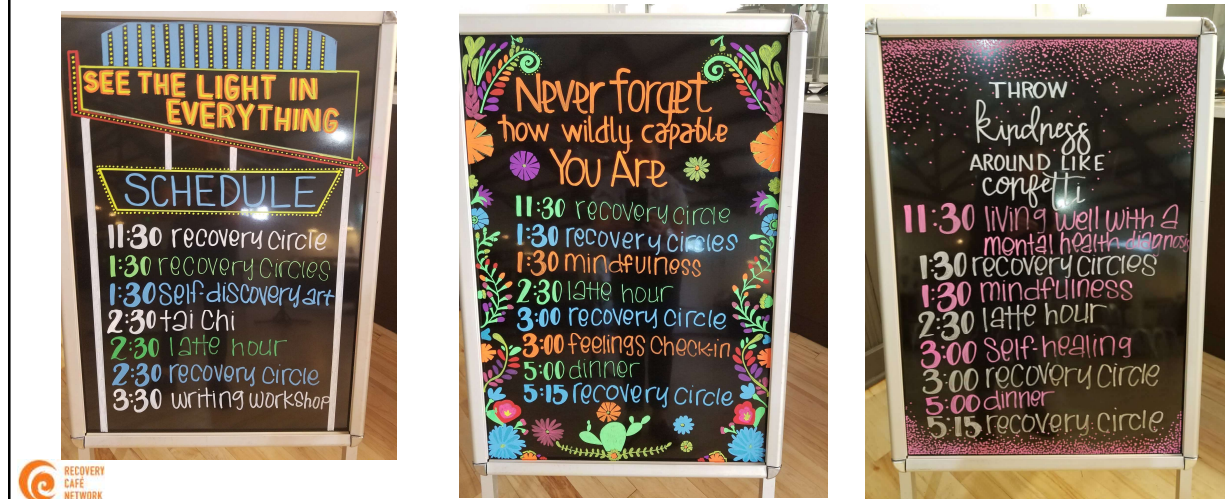 SEE THE LIGHT IN
EVERYTHING
SCHEDULE
11:30 recovery circle
1:30 recovery circles
1:30 Self-discovery art
2:30 tai chi
2:30 latte hour
2:30 recovery circle
3:30 writing workshop
Never forget
how wildly capable
You Are
11:30 recovery circle
1:30 recovery circles
1:30 mindfulness
2:30 latte hour
3:00 recovery circle
3:00 feelings check-in
5:00 dinner
5:15 recovery circle
THROW
kindness
AROUND LIKE
confetti
11:30 living well with a
mental health diagnosis
1:30 recovery circles
1:30 mindfulness
2:30 latte hour
3:00 Self-healing
3:00 recovery circle
5:00 dinner
5:15 recovery circle
RECOVERY
CAFÉ
NETWORK